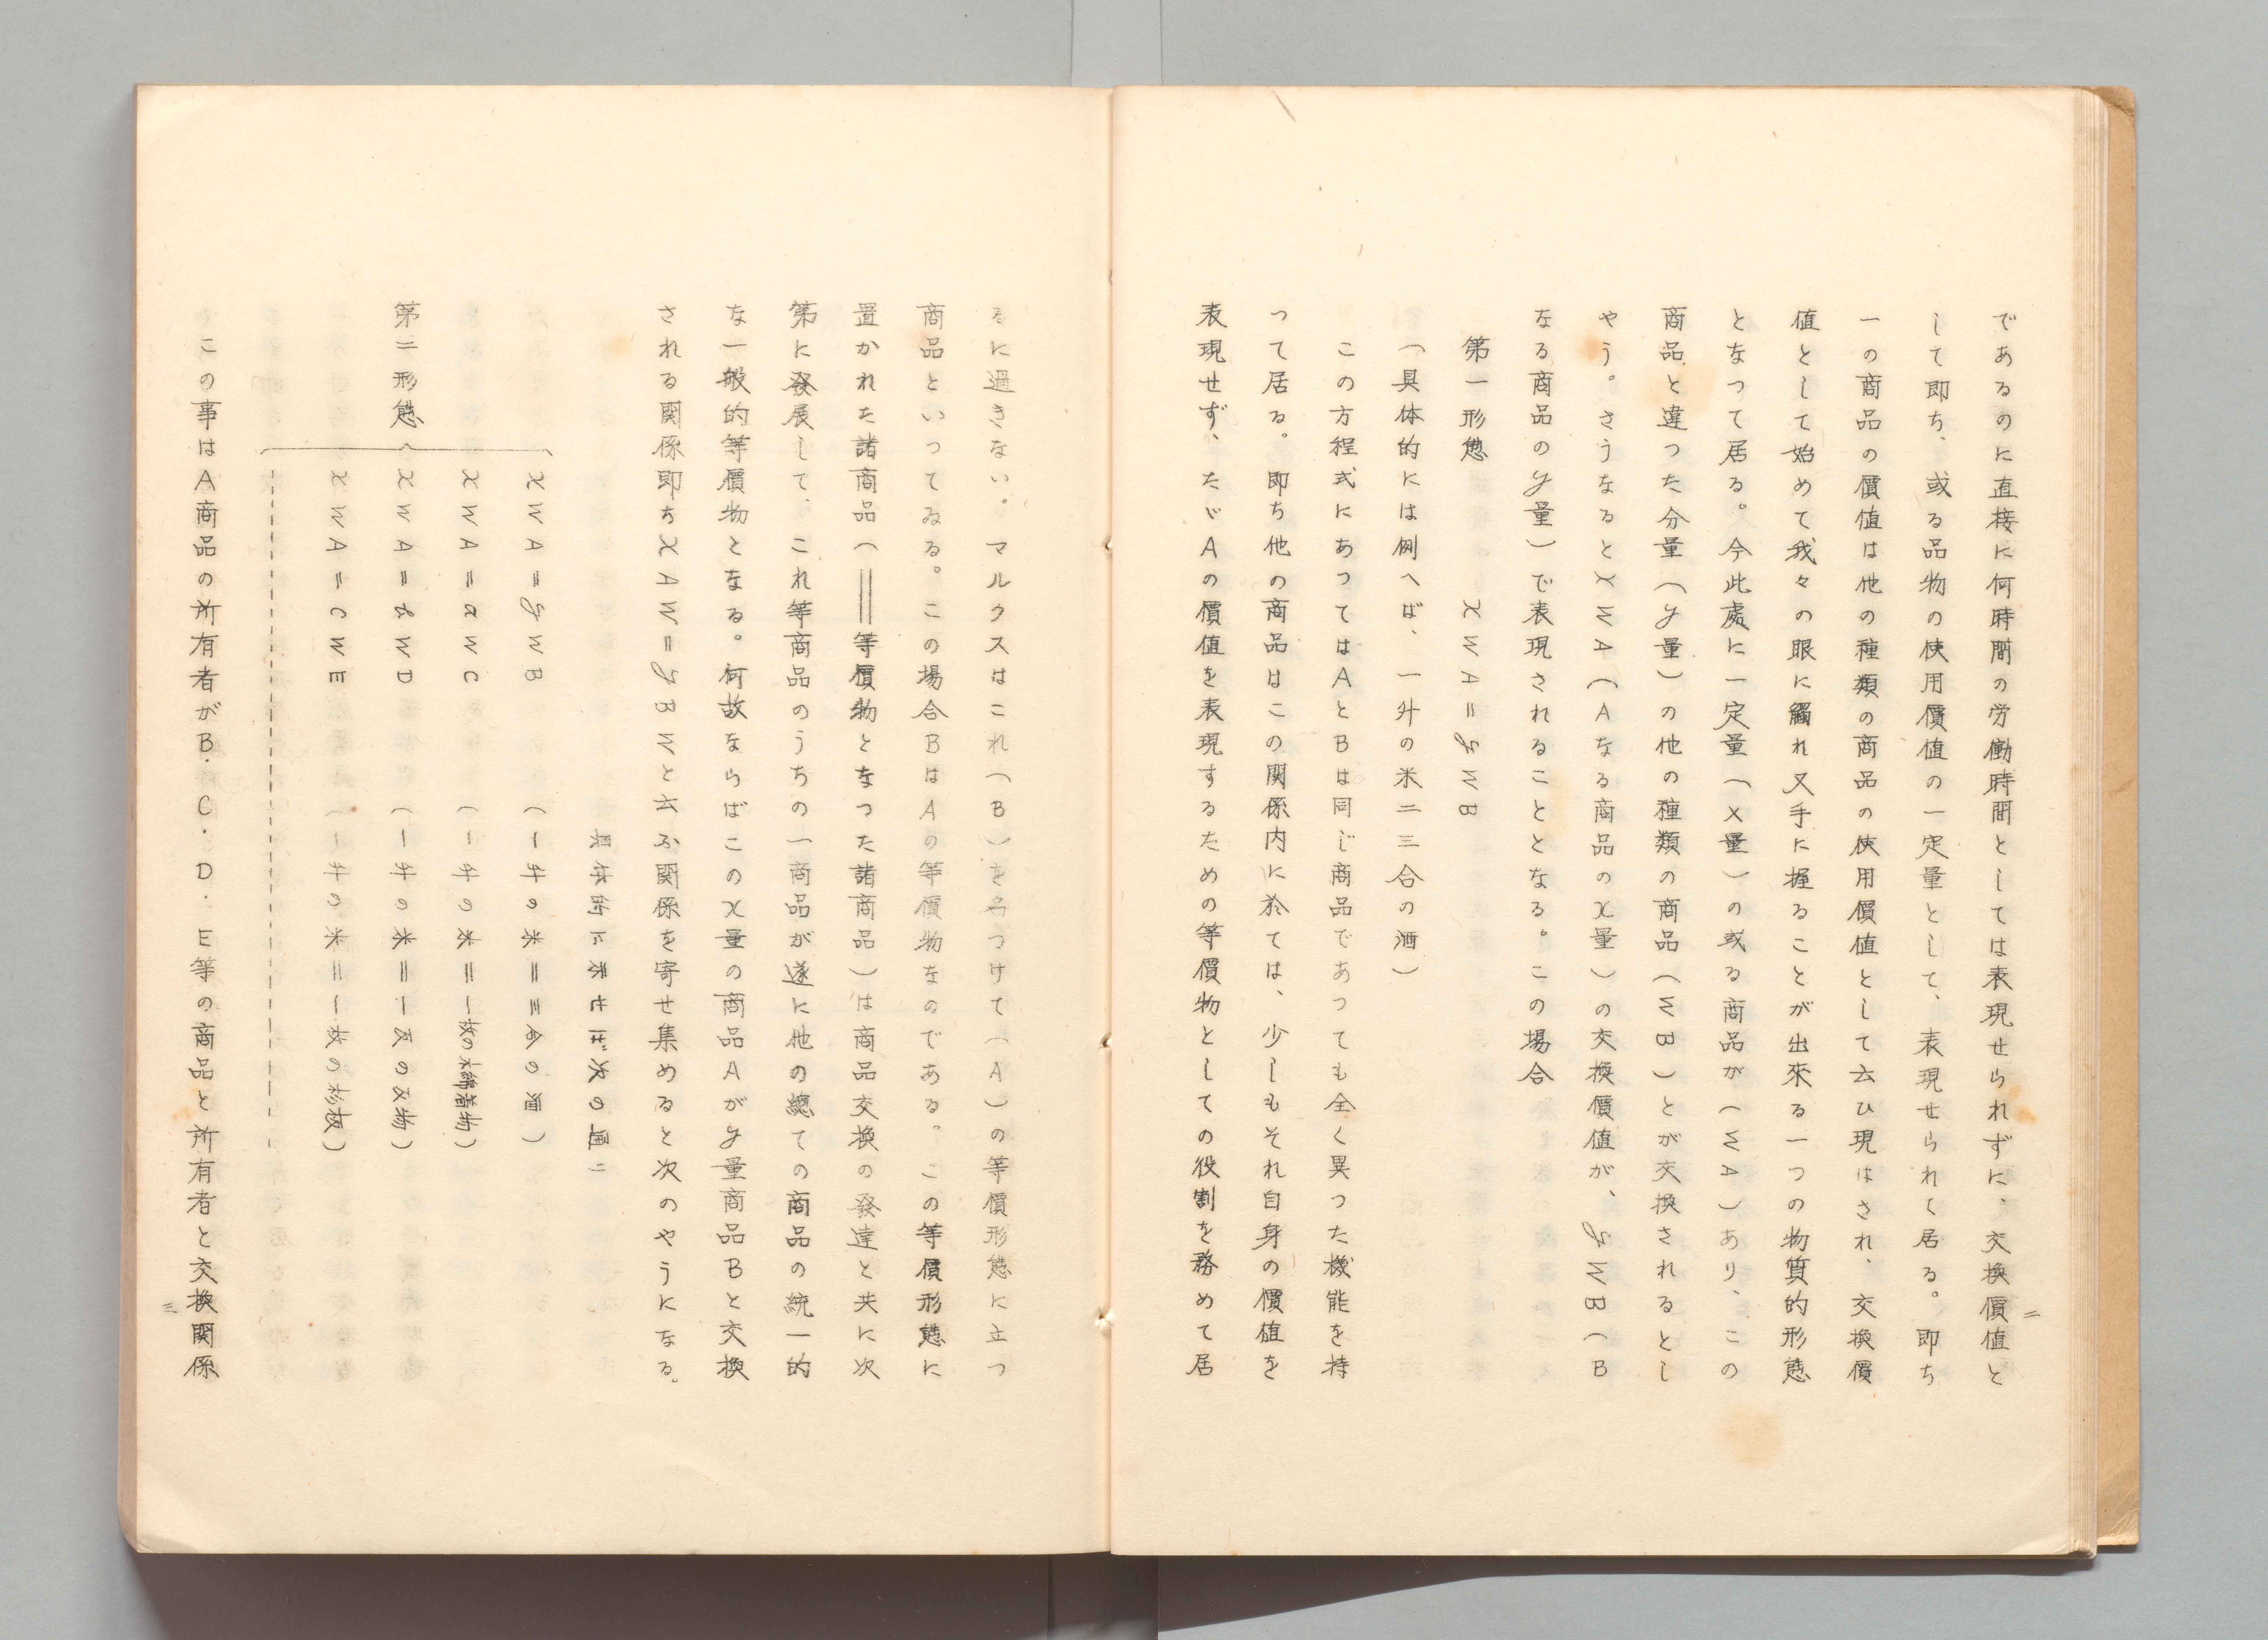 二
であるのに直接に何時間の労働時間としては表現せられずに、交換價値と
して即ち、或る品物の使用價値の一定量として、表現せられて居る。即ち
一の商品の價値は他の種類の商品の使用價値として云ひ現はされ、交換價
値として始めて我々の眼に觸れ又手に握ることが出來る一つの物質的形態
となつて居る。今此處に一定量(X量)の或る商品が(WA)あり、この
商品と違つた分量(y量)の他の種類の商品(WB)とが交換されるとし
やう。さうなるとXWA(Aなる商品のX量)の交換價値が、yWB(B
なる商品のy量)で表現されることとなる。この場合
第一形態 XWA=yWB
(具体的には例へば、一升の米=三合の酒)
この方程式にあつてはAとBは同じ商品であつても全く異つた機能を持
つて居る。即ち他の商品はこの関係内に於ては、少しもそれ自身の價値を
表現せず、たゞAの價値を表現するための等價物としての役割を務めて居
るに過きない。マルクスはこれ(B)を名つけて(A)の等價形態に立つ
商品といつてゐる。この場合BはAの等價物なのである。この等價形態に
置かれた諸商品(=等價物となつた諸商品)は商品交換の發達と共に次
第に發展して、これ等商品のうちの一商品が遂に他の總ての商品の統一的
な一般的等價物となる。何故ならばこのX量の商品Aがy量商品Bと交換
される関係即ちXAW=yBWと云ふ関係を寄せ集めると次のやうになる。
具体的に示せば次の通り
XWA=yWB (一升の米=三合の酒)
XWA=aWC (一升の米=一枚の木綿着物)
第二形態 XWA=dWD (一升の米=一反の反物)
XWA=CWE (一升の米=一枚の杉板)
この事はA商品の所有者がB.C.D.E等の商品と所有者と交換関係
三